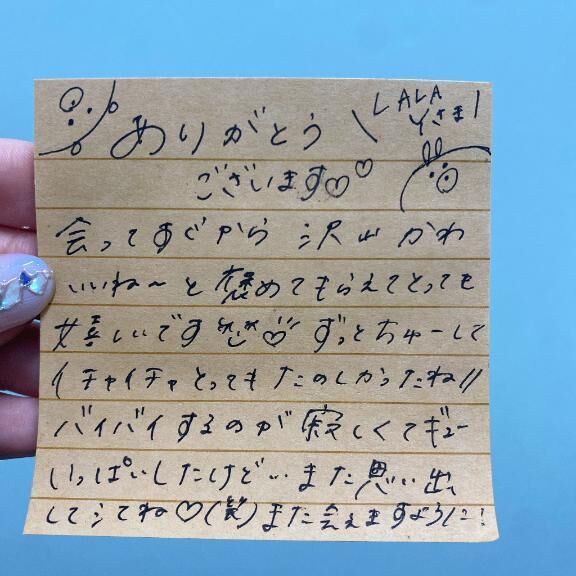 ありがとう
LALA
Yさま
ございます♡♡
会ってすぐから 沢山 かわ
いいね〜と褒めてもらえてとっても
嬉しいです♡ずっとちゅーして
イチャイチャとってもたのしかったね!!
バイバイするのが寂しくてギュー
いっぱいしたけど…また思い出
してシてね♡(笑)また会えますように!